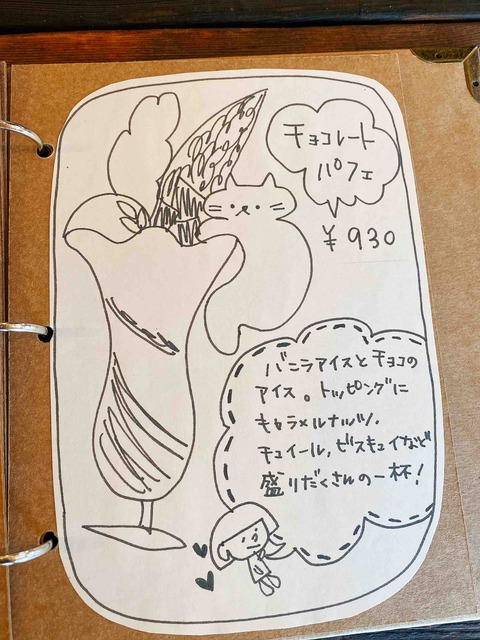 チョコレート
パフェ
¥930
バニラアイスとチョコの
アイス。トッピングに
キャラメルナッツ、
チュイール、ビスキュイなど
盛りだくさんの一杯!